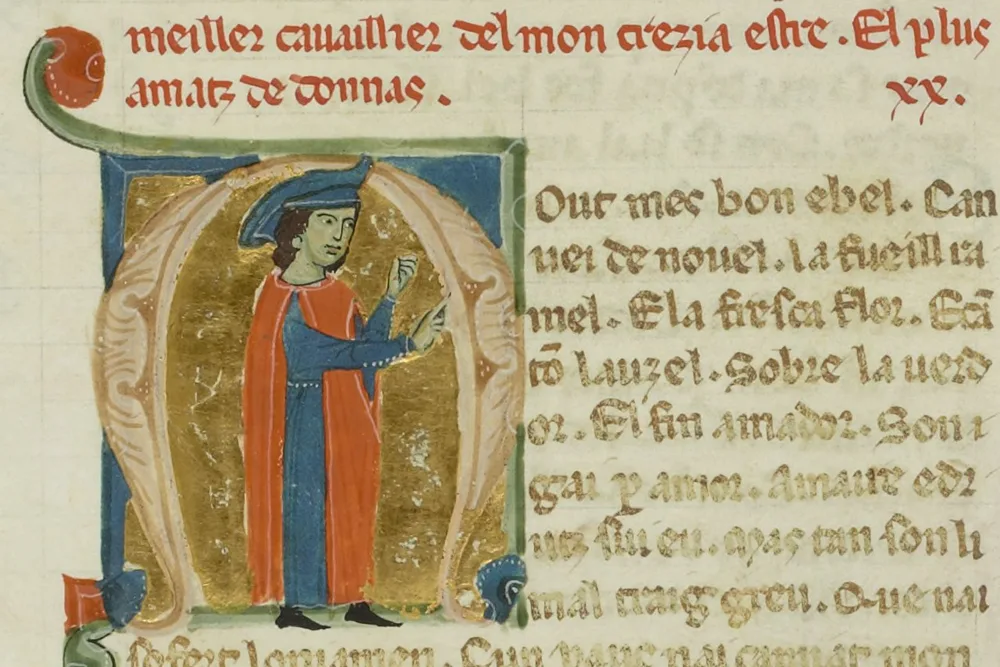 meiller cauaillier del mon crezia estre. El plus
amatz de donnas.
xx.
MOut mes bon ebel. Can
uei de nouel. la fueill ra
mel. E la fresca flor. E cā
tō lauzel. Sobre la uerd
or. El fin amador. Son i
gai ꝑ amor. Amaire e dr
utz sui eu. Mas tan son li
mal traig greu. Que nai
sofert loniamen.